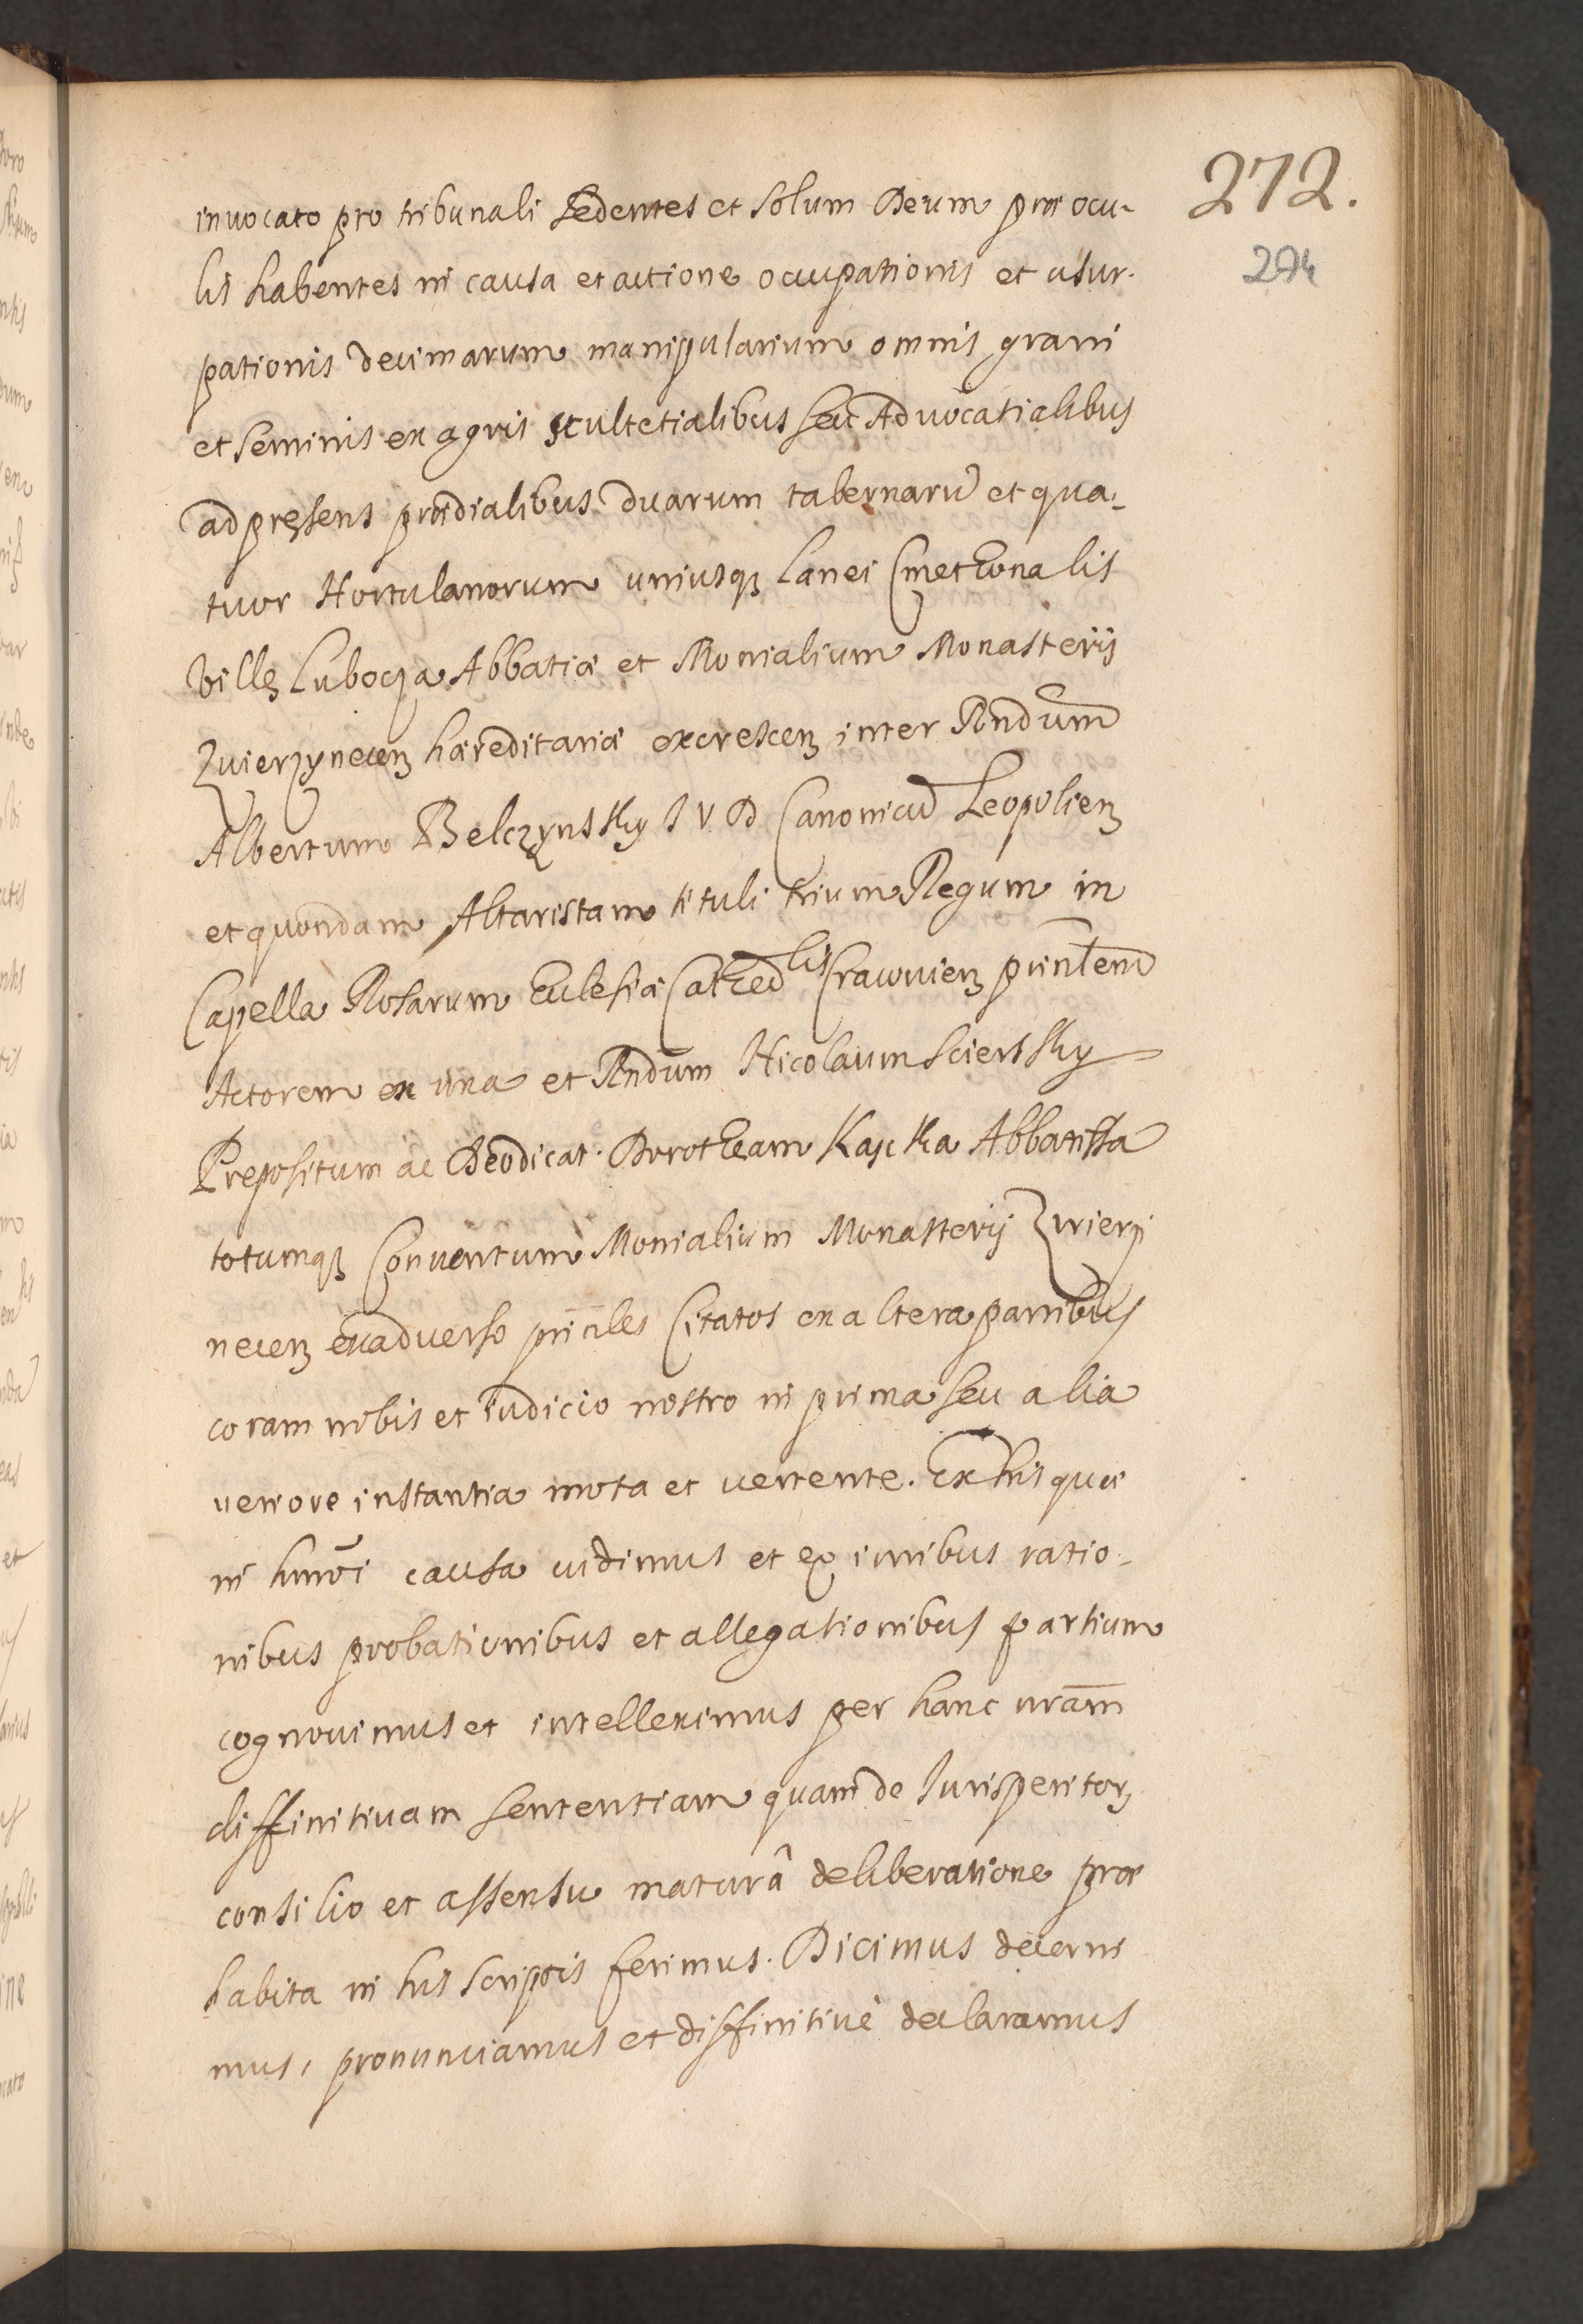 272.
274
invocato pro tribunali sedentes et solum Deum præ ocu-
lis habentes in causa et actione occupationis et usur-
pationis decimarum manipularium omnis grani
et seminis ex agris scultetialibus seu Advocatialibus
ad pręsens prædialibus duarum tabernarū et qua-
tuor Hortulanorum uniusqꝫ Lanei Cmethonalis
villę Lubocza Abbatiæ et Monialium Monasterij
Zwierzynecenꝫ hæreditariæ excrescenꝫ inter Rndum̄
Albertum Belczynsky I V D Canonicū Leopolienꝫ
et quondam Altaristam tituli trium Regum in
Capella Rosarum Ecclesiæ Cathedlis Cracovienꝫ prin̄lem
Actorem ex una et Rndūm Nicolaum Sciersky
Prepositum ac Deodicat. Dorotheam Kącka Abbatissā
totumqꝫ Conventum Monialium Monasterij Zwierzy
necenꝫ ex adverso prin̄cles Citatos ex altera partibus
coram nobis et iudicio nostro in prima seu alia
veriore instantia mota et vertente. Ex his quæ
in humōi causa vidimus et ex iuribus ratio-
nibus probationibus et allegationibus partium
cognovimus et intelleximus per hanc nrām
diffinitivam sententiam quam de Iurisperitorꝫ
consilio et assensu maturâ deliberatione præ
habita in his scriptis ferimus. Dicimus decerni
mus, pronunciamus et diffinitivè declaramus